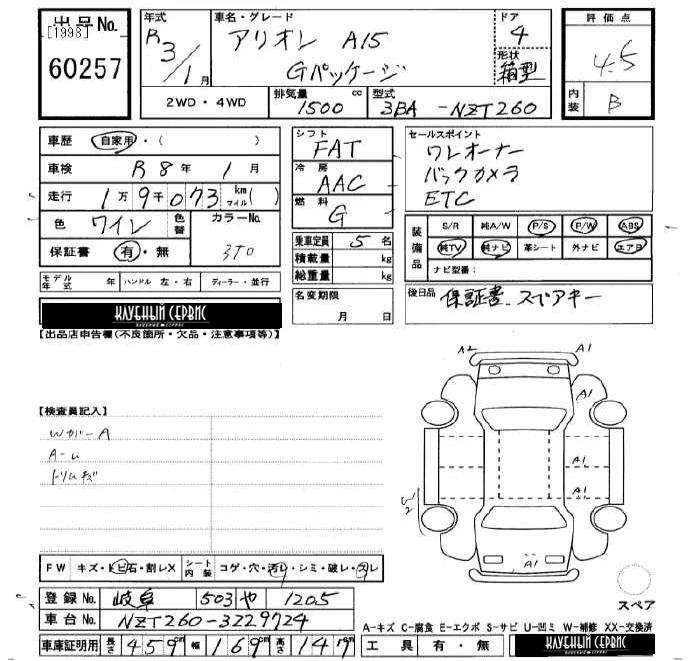 出品No.
[1998]
60257
年式
R3/1月
車名・グレード
アリオン A15
Gパッケージ
ドア
4
形状
箱型
評価点
4.5
内装
B
2WD・4WD
排気量
1500 cc
型式
3BA-NZT260
車歴 自家用・( )
車検 R8年 1月
走行 1万9千073 km マイル( )
色 ワイン 色替 カラーNo.
3T0
保証書 有・無
モデル年式 年 ハンドル 左・右 ディーラー・並行
シフト
FAT
冷房
AAC
燃料
G
乗車定員 5名
積載量 kg
総重量 kg
名変期限
月 日
セールスポイント
ワンオーナー
バックカメラ
ETC
装備品
S/R 純A/W P/S P/W ABS
純TV 純ナビ 革シート 外ナビ エアB
ナビ型番:
後日品 保証書、スペアキー
КЛУБНЫЙ СЕРВИС
【出品店申告欄(不良箇所・欠品・注意事項等)】
【検査員記入】
WガーA
A-ム
トリムキズ
A2 A1
A1
A1
A1
W2
A1
スペア
FW キズ・トビ石・割レX シート内装 コゲ・穴・汚レ・シミ・破レ・スレ
登録No. 岐阜 503 や 1205
車台No. NZT260-3229724
車庫証明用 長さ 459cm 幅 169cm 高さ 147cm
A-キズ C-腐食 E-エクボ S-サビ U-凹ミ W-補修 XX-交換済
工具 有・無
КЛУБНЫЙ СЕРВИС